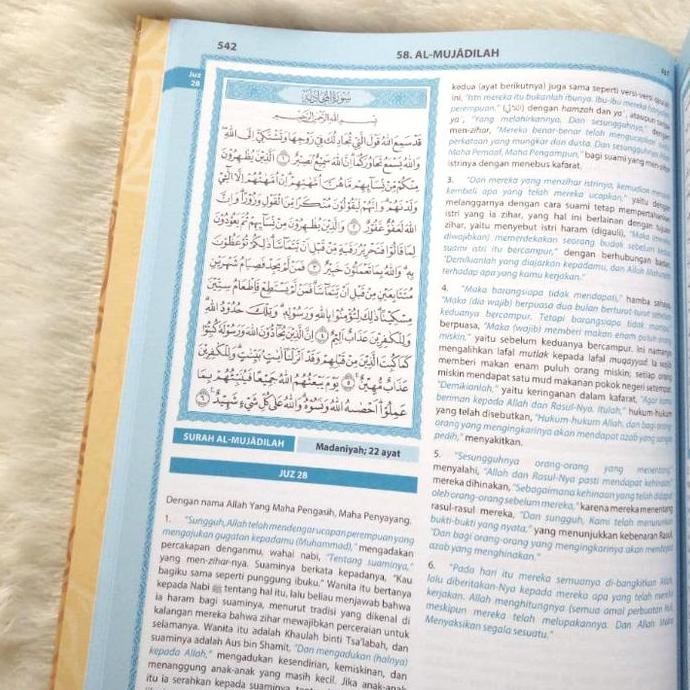 542
58. AL-MUJĀDILAH
Juz
28
سورة المجادلة
بسم الله الرحمن الرحيم
قد سمع الله قول التي تجادلك في زوجها وتشتكي إلى الله
والله يسمع تحاوركما إن الله سميع بصير ١ الذين يظهرون
منكم من نسائهم ما هن أمهتهم إن أمهتهم إلا الئي
ولدنهم وإنهم ليقولون منكرا من القول وزورا وإن
الله لعفو غفور ٢ والذين يظهرون من نسائهم ثم يعودون
لما قالوا فتحرير رقبة من قبل أن يتماسا ذلكم توعظون
به والله بما تعملون خبير ٣ فمن لم يجد فصيام شهرين
متتابعين من قبل أن يتماسا فمن لم يستطع فإطعام ستين
مسكينا ذلك لتؤمنوا بالله ورسوله وتلك حدود الله
وللكفرين عذاب أليم ٤ إن الذين يحادون الله ورسوله كبتوا
كما كبت الذين من قبلهم وقد أنزلنا ءايت بينت وللكفرين
عذاب مهين ٥ يوم يبعثهم الله جميعا فينبئهم بما
عملوا أحصىه الله ونسوه والله على كل شيء شهيد ٦
SURAH AL-MUJĀDILAH
Madaniyah; 22 ayat
JUZ 28
Dengan nama Allah Yang Maha Pengasih, Maha Penyayang.
1. "Sungguh, Allah telah mendengar ucapan perempuan yang
mengajukan gugatan kepadamu (Muhammad)," mengadakan
percakapan denganmu, wahai nabi, "Tentang suaminya,"
yang men-zihar-nya. Suaminya berkata kepadanya, "Kau
bagiku sama seperti punggung ibuku." Wanita itu bertanya
kepada Nabi ﷺ tentang hal itu, lalu beliau menjawab bahwa
ia haram bagi suaminya, menurut tradisi yang dikenal di
kalangan mereka bahwa zihar mewajibkan perceraian untuk
selamanya. Wanita itu adalah Khaulah binti Tsa'labah, dan
suaminya adalah Aus bin Shamit. "Dan mengadukan (halnya)
kepada Allah," mengadukan kesendirian, kemiskinan, dan
menanggung anak-anak yang masih kecil. Jika anak-anak
itu ia serahkan kepada suaminya,
kedua (ayat berikutnya) juga sama seperti versi
ini, "Istri mereka itu bukanlah ibunya. Ibu-ibu mereka
perempuan." dengan hamzah dan ya', ataupun tanpa
ya', "Yang melahirkannya. Dan sesungguhnya," dengan
men-zihar, "Mereka benar-benar telah mengucapkan
perkataan yang mungkar dan dusta. Dan sesungguhnya Allah
Maha Pemaaf, Maha Pengampun," bagi suami yang men-zihar
istrinya dengan menebus kafarat.
3. "Dan mereka yang menzihar istrinya, kemudian
kembali apa yang telah mereka ucapkan," yaitu dengan
melanggarnya dengan cara suami tetap mempertahankan
istri yang ia zihar, yang hal ini berlainan dengan tujuan
zihar, yaitu menyebut istri haram (digauli), "Maka (mereka
diwajibkan) memerdekakan seorang budak sebelum kedua
suami istri itu bercampur," dengan berhubungan badan.
"Demikianlah yang diajarkan kepadamu, dan Allah
terhadap apa yang kamu kerjakan."
4. "Maka barangsiapa (tidak mendapat)," hamba sahaya,
"Maka (dia wajib) berpuasa dua bulan berturut-turut sebelum
keduanya bercampur. Tetapi barangsiapa tidak mampu,"
berpuasa, "Maka (wajib) memberi makan enam puluh orang
miskin," yaitu sebelum keduanya bercampur. Ini namanya
mengalihkan lafal mutlak kepada lafal muqayyad. Ia wajib
memberi makan enam puluh orang miskin; setiap orang
miskin mendapat satu mud makanan pokok negeri setempat.
"Demikianlah," yaitu keringanan dalam kafarat, "Agar kamu
beriman kepada Allah dan Rasul-Nya. Itulah," hukum-hukum
yang telah disebutkan, "Hukum-hukum Allah, dan bagi orang-
orang yang mengingkarinya akan mendapat azab yang sangat
pedih," menyakitkan.
5. "Sesungguhnya orang-orang yang menentang,"
menyalahi, "Allah dan Rasul-Nya pasti mendapat kehinaan,"
mereka dihinakan, "Sebagaimana kehinaan yang telah didapat
oleh orang-orang sebelum mereka," karena mereka menentang
rasul-rasul mereka, "Dan sungguh, Kami telah menurunkan
bukti-bukti yang nyata," yang menunjukkan kebenaran Rasul.
"Dan bagi orang-orang yang mengingkarinya akan mendapat
azab yang menghinakan."
6. "Pada hari itu mereka semuanya di-bangkitkan Allah,
lalu diberitakan-Nya kepada mereka apa yang telah mereka
kerjakan. Allah menghitungnya (semua amal perbuatan itu),
meskipun mereka telah melupakannya. Dan Allah Maha
Menyaksikan segala sesuatu."